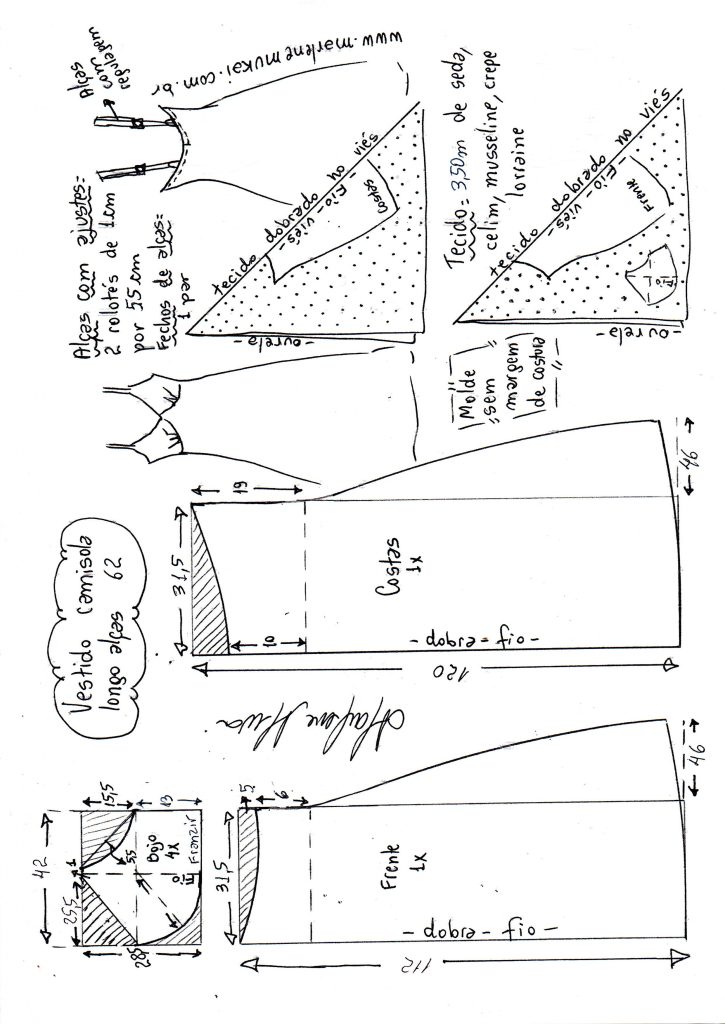 Vestido camisola
longo alças 62
Alças com ajustes=
2 rolotés de 1cm
por 55 cm
Fechos de alças=
1 par
Alças
com
regulagem
www.marlenemukai.com.br
tecido dobrado no viés
-Fio-viés-
Costas
-ourela-
Tecido= 3,50m de seda,
cetim, musseline, crepe
lorraine
tecido dobrado no viés
-Fio-viés-
Frente
Fio
-ourela-
"Molde
"sem
margem
de costura"
31,5
19
10
Costas
1x
-dobra=fio-
120
46
42
25,5
1
15,5
13
5,5
28,5
Bojo
4x
Fio
Franzir
31,5
5
6
Frente
1x
-dobra-fio-
112
46